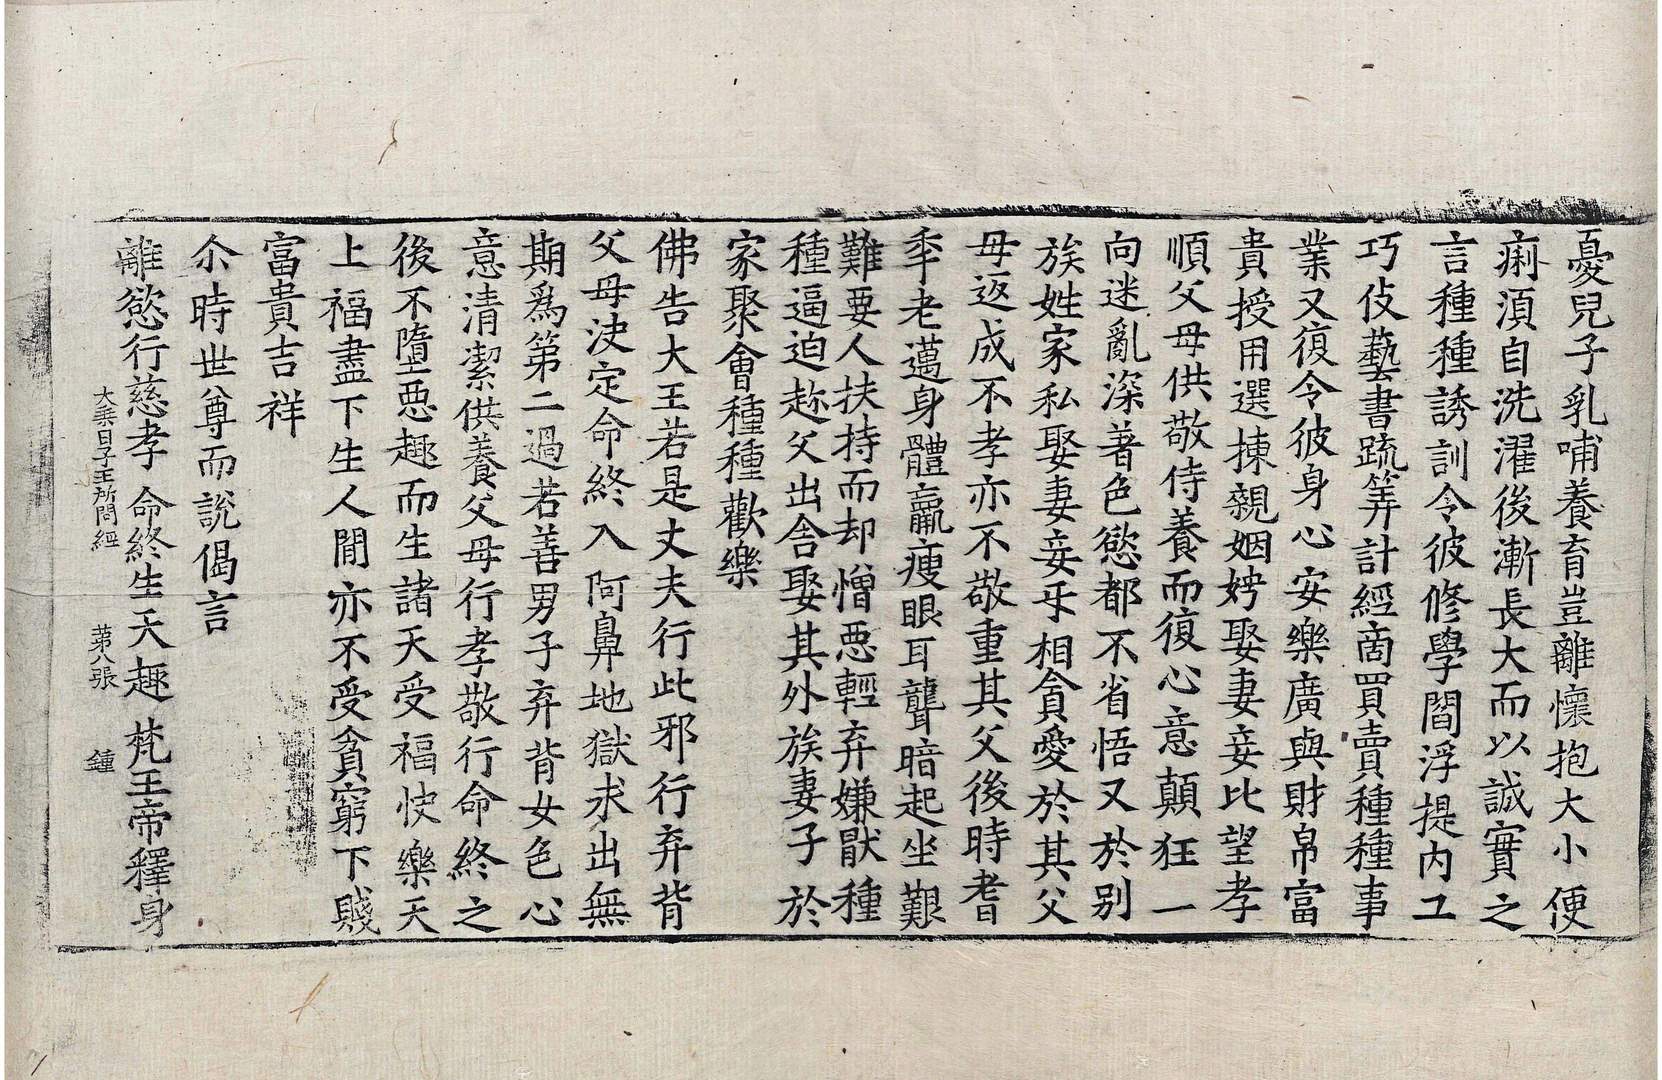 憂兒子乳哺養育豈離懷抱大小便
痢須自洗濯後漸長大而以誠實之
言種種誘訓令彼修學閻浮提内工
巧伎藝書䟽筭計經啇買賣種種事
業又復令彼身心安樂廣與財帛富
貴授用選揀親姻娉娶妻妾比望孝
順父母供敬侍養而復心意顛狂一
向迷亂深著色慾都不省悟又於别
族姓家私娶妻妾㸦相貪愛於其父
母返成不孝亦不敬重其父後時耆
秊老邁身體羸瘦眼耳聾暗起坐艱
難要人扶持而却憎惡輕弃嫌猒種
種逼迫趂父出舍娶其外族妻子於
家聚會種種歡樂
佛告大王若是丈夫行此邪行弃背
父母決定命終入阿鼻地獄求出無
期爲第二過若善男子弃背女色心
意清潔供養父母行孝敬行命終之
後不墮惡趣而生諸天受福快樂天
上福盡下生人間亦不受貧窮下賤
富貴吉祥
尒時世尊而說偈言
離慾行慈孝 命終生天趣 梵王帝釋身
大乘日子王所問經 第八張 鍾